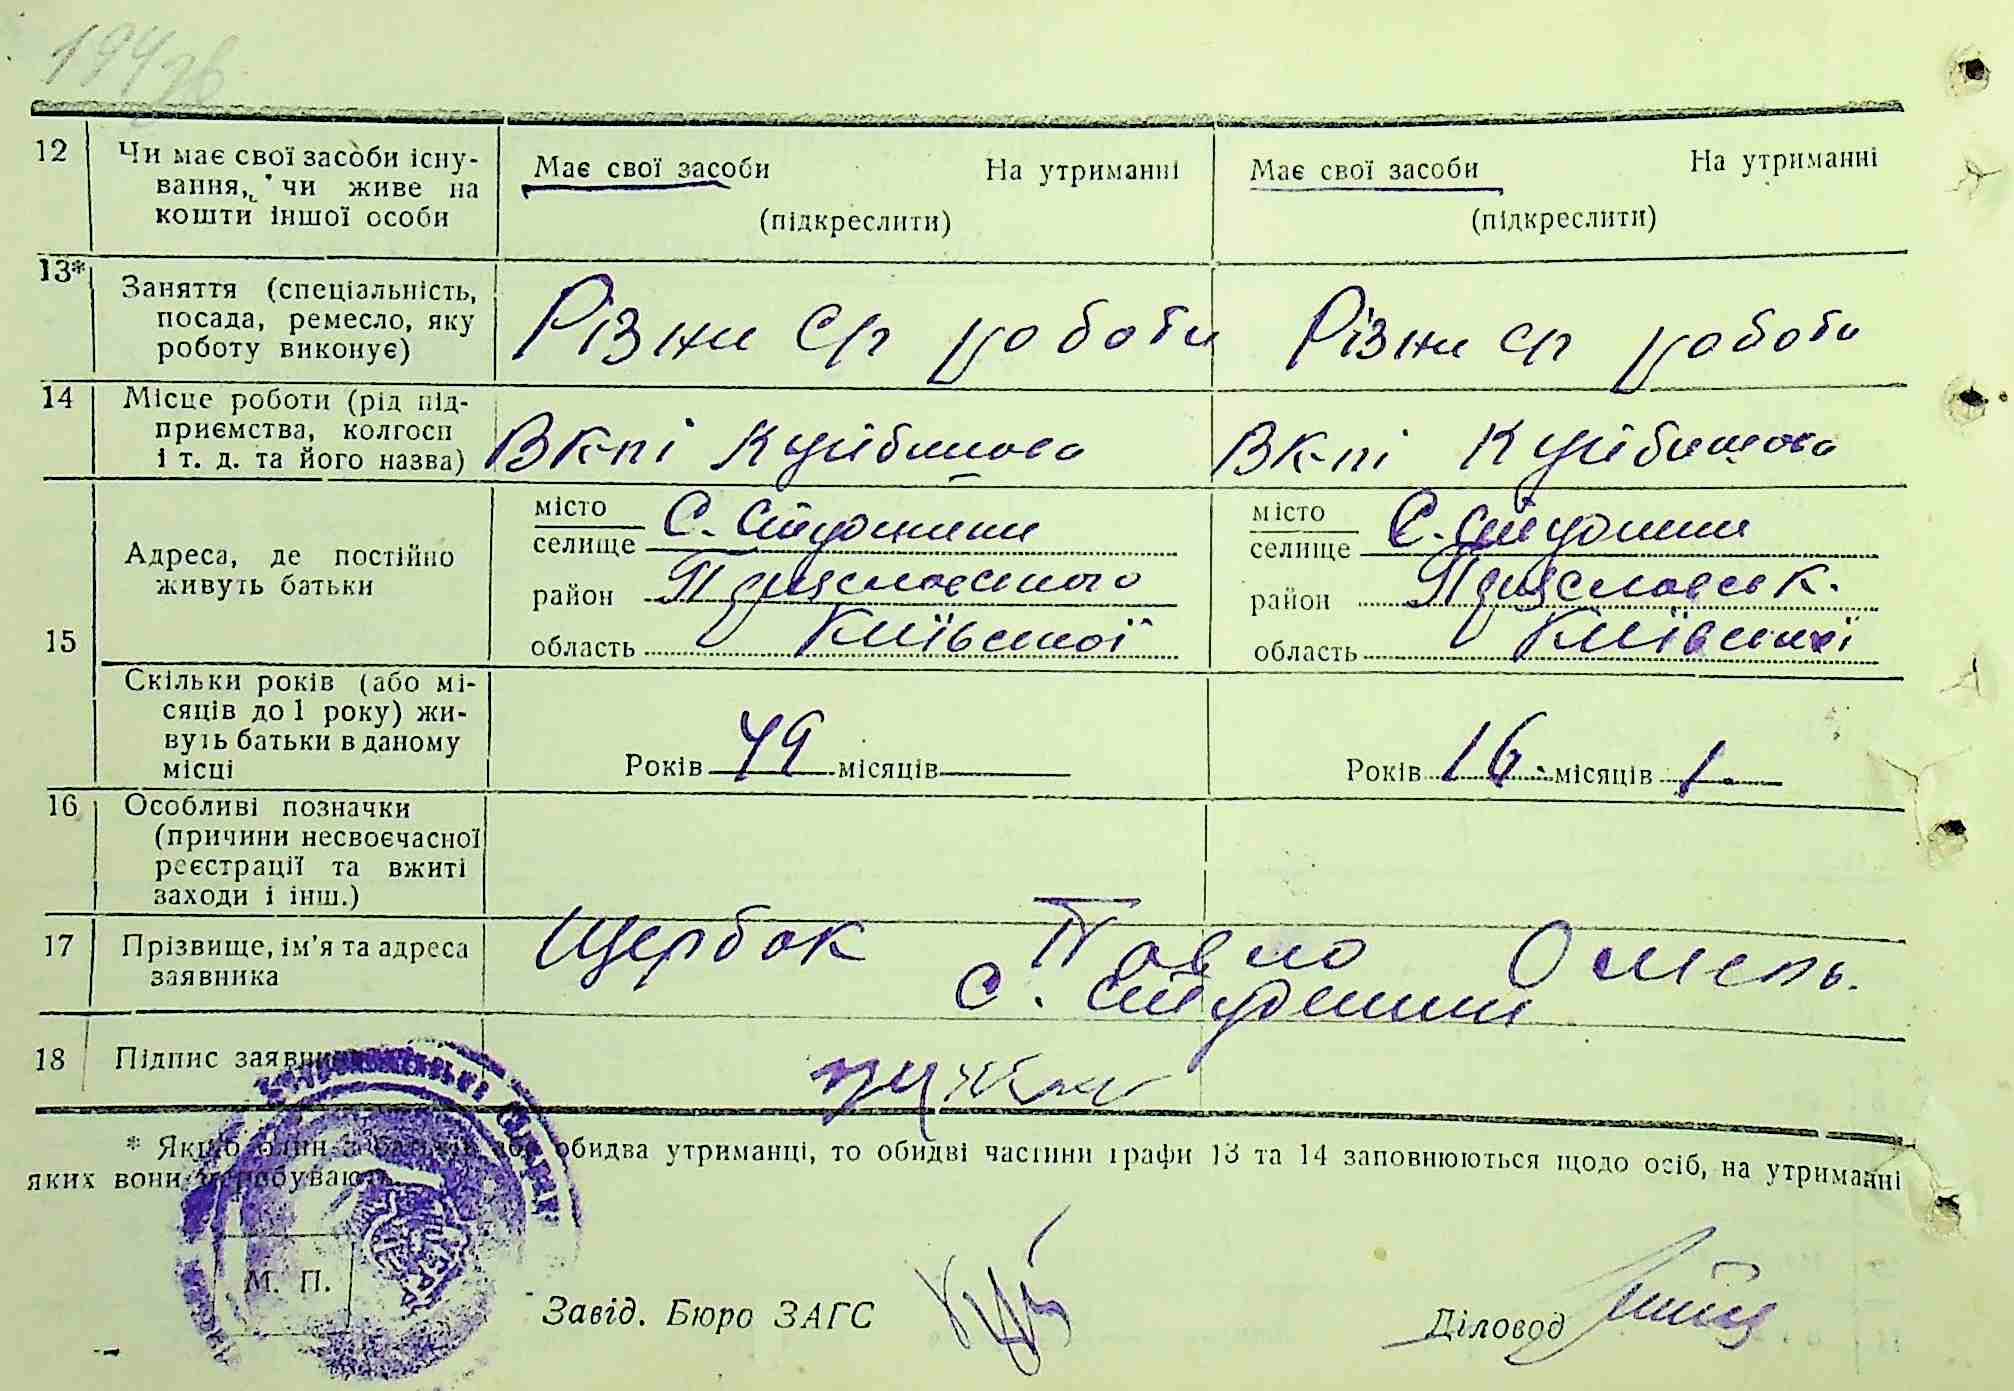 12 Чи має свої засоби існу-
вання, чи живе на
кошти іншої особи
Має свої засоби На утриманні
(підкреслити)
Має свої засоби На утриманні
(підкреслити)
13* Заняття (спеціальність,
посада, ремесло, яку
роботу виконує)
Різни сг роботи
Різни сг роботи
14 Місце роботи (рід під-
приємства, колгосп
і т. д. та його назва)
Куйбишова
Куйбишова
15 Адреса, де постійно
живуть батьки
місто
селище С. Студеники
район
область Київської
місто
селище С. Студеники
район
область Київської
Скільки років (або мі-
сяців до 1 року) жи-
вуть батьки в даному
місці
Років 49 місяців
Років 16. місяців 1.
16 Особливі позначки
(причини несвоєчасної
реєстрації та вжиті
заходи і інш.)
17 Прізвище, ім'я та адреса
заявника
Щербак Павло Омель.
С. Студеники
18 Підпис
* Якщо один з батьків або обидва утриманці, то обидві частини графи 13 та 14 заповнюються щодо осіб, на утриманні
яких вони перебувають.
М. П.
Завід. Бюро ЗАГС
Діловод